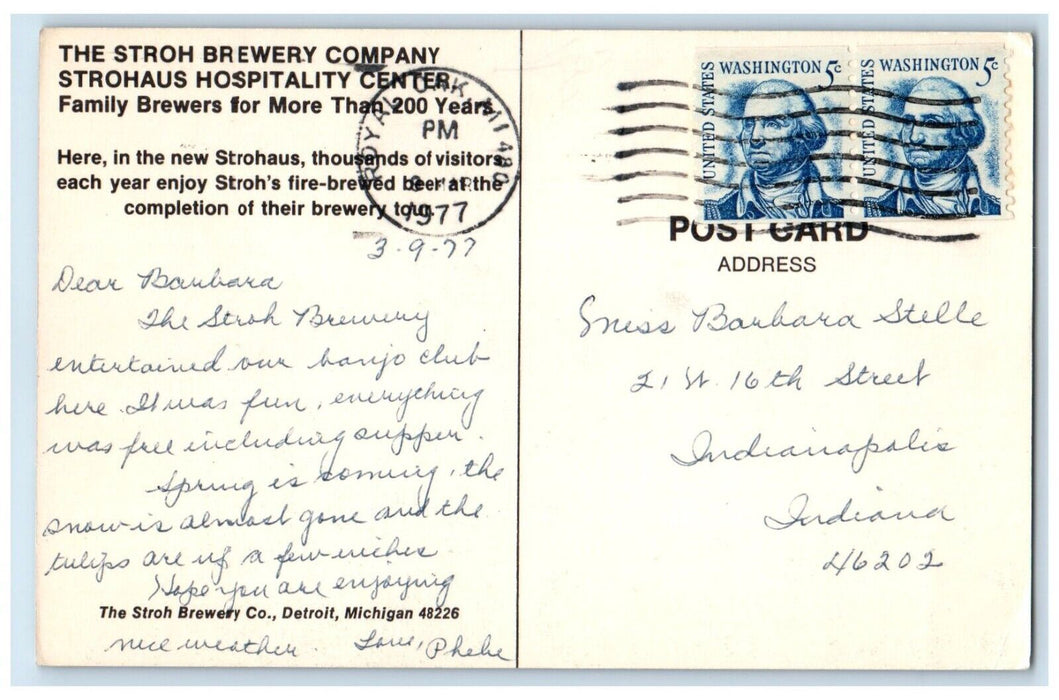 THE STROH BREWERY COMPANY
STROHAUS HOSPITALITY CENTER
Family Brewers for More Than 200 Years
Here, in the new Strohaus, thousands of visitors
each year enjoy Stroh's fire-brewed beer at the
completion of their brewery tour.
ROYAL OAK, MI 480
PM
9 MAR
1977
3-9-77
Dear Barbara
The Stroh Brewery
entertained our banjo club
here. It was fun, everything
was free including supper.
Spring is coming, the
snow is almost gone and the
tulips are up a few inches
Hope you are enjoying
The Stroh Brewery Co., Detroit, Michigan 48226
nice weather. Love, Phebe
UNITED STATES WASHINGTON 5c
UNITED STATES WASHINGTON 5c
POST CARD
ADDRESS
Miss Barbara Stelle
21 W. 16th Street
Indianapolis
Indiana
46202